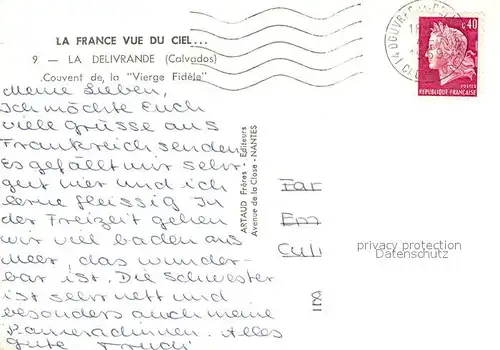 LA FRANCE VUE DU CIEL...
9 — LA DELIVRANDE (Calvados)
Couvent de la "Vierge Fidèle"
Meine Lieben,
Ich möchte Euch
viele grüsse aus
Frankreich senden
Es gefällt mir sehr
gut hier und ich
lerne fleissig In
der Freizeit gehen
wir viel baden ans
Meer, das wunder-
bar ist. Die Schwester
ist sehr nett und
besonders auch meine
Kameradinnen. Alles
gute Trudi
ARTAUD Frères - Editeurs
Avenue de la Close - NANTES
Far
Em
privacy protection
Datenschutz
0,40
POSTES
REPUBLIQUE FRANÇAISE